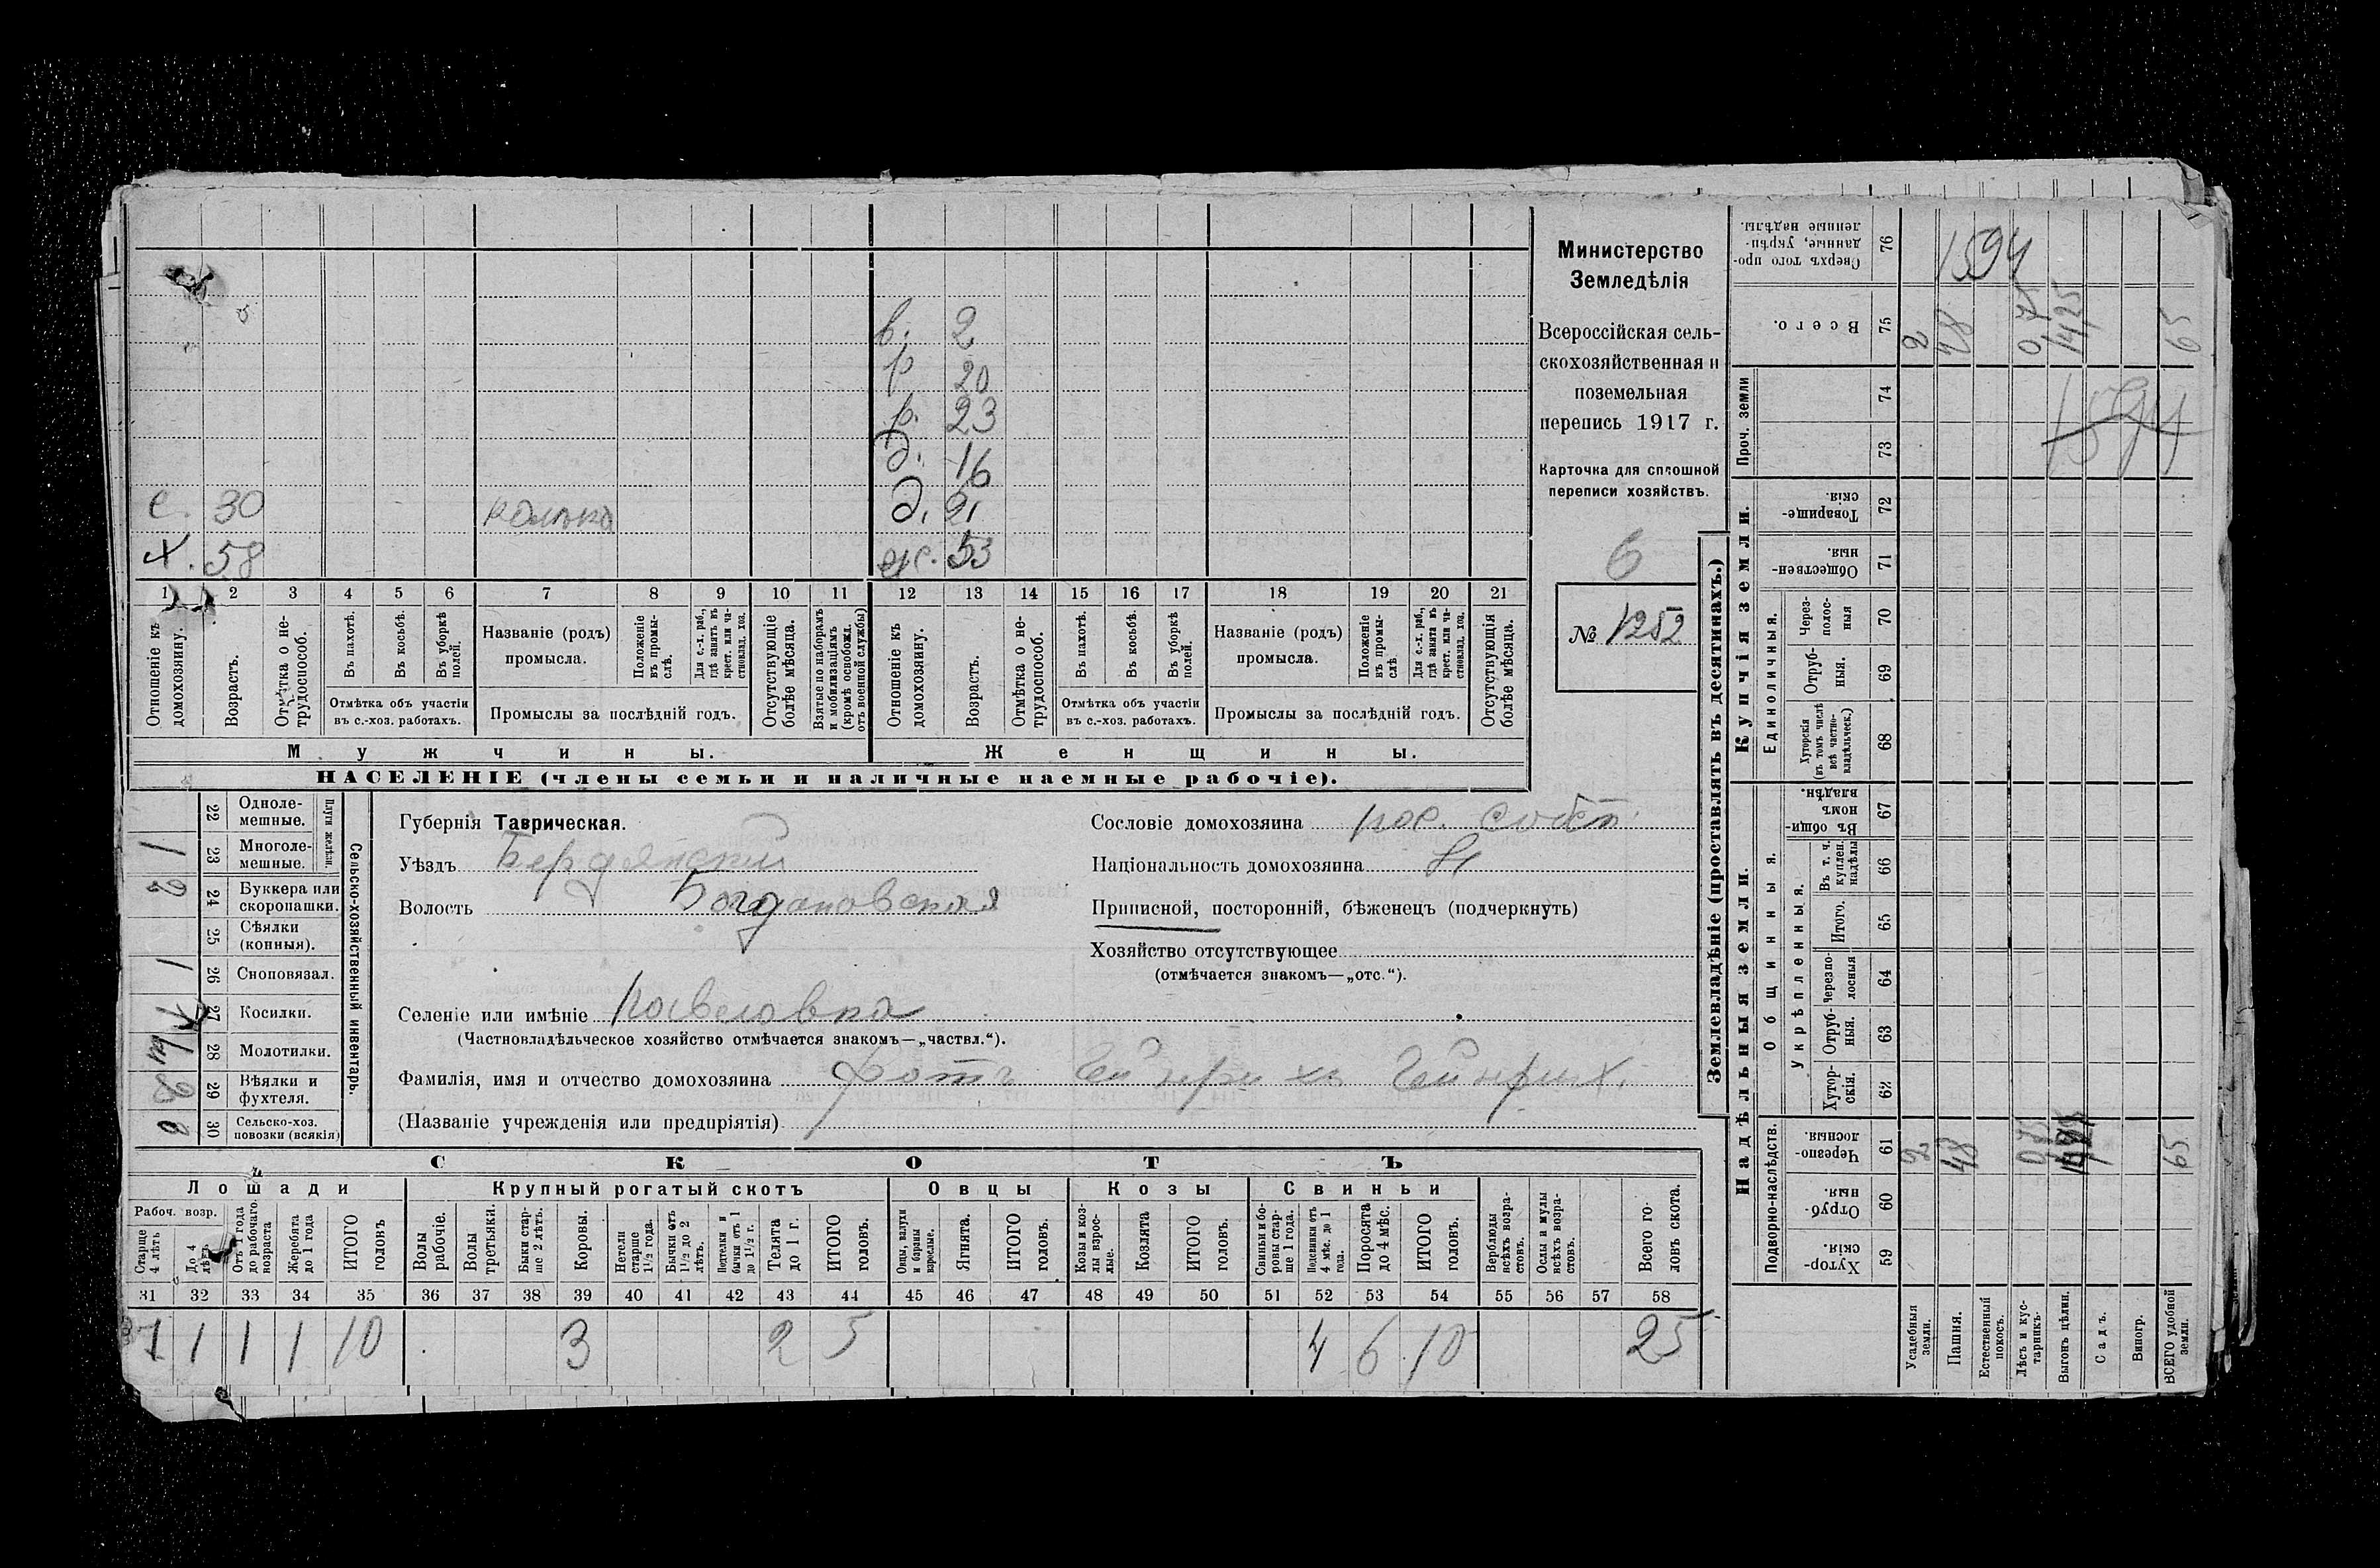 Министерство
Земледѣлія
Всероссійская сель-
скохозяйственная и
поземельная
перепись 1917 г.
Карточка для сплошной
переписи хозяйствъ.
6
№ 1252
в. 2
р 20
р. 23
д. 16
с. 30 д. 21
х. 58 ж. 53
1 2 3 4 5 6 7 8 9 10 11 12 13 14 15 16 17 18 19 20 21
Отношеніе къ домохозяину.
Возрастъ.
Отмѣтка о не-трудоспособ.
Въ пахотѣ.
Въ косьбѣ.
Въ уборкѣ полей.
Отмѣтка объ участіи
въ с.-хоз. работахъ.
Названіе (родъ)
промысла.
Положеніе въ промы-слѣ.
Для с.-х. раб., гдѣ занятъ въ крест. или ча-стновлад. хоз.
Промыслы за послѣдній годъ.
Отсутствующіе болѣе мѣсяца.
Взятые по наборамъ и мобилизаціямъ (кромѣ освобожд. отъ военной службы)
Отношеніе къ домохозяину.
Возрастъ.
Отмѣтка о не-трудоспособ.
Въ пахотѣ.
Въ косьбѣ.
Въ уборкѣ полей.
Отмѣтка объ участіи
въ с.-хоз. работахъ.
Названіе (родъ)
промысла.
Положеніе въ промы-слѣ
Для с.-х. раб., гдѣ занята въ крест. или ча-стновлад. хоз.
Промыслы за послѣдній годъ.
Отсутствующія болѣе мѣсяца.
Мужчины. Женщины.
НАСЕЛЕНІЕ (члены семьи и наличные наемные рабочіе).
Сельско-хозяйственный инвентарь.
Плуги желѣзн.
22 Одноле-мешные.
1 23 Многоле-мешные.
2 24 Буккера или скоропашки.
25 Сѣялки (конныя).
1 26 Сноповязал.
27 Косилки.
28 Молотилки.
29 Вѣялки и фухтеля.
30 Сельско-хоз. повозки (всякія)
Губернія Таврическая.
Уѣздъ Бердянский
Волость Богдановская
Селеніе или имѣніе Павловка
(Частновладѣльческое хозяйство отмѣчается знакомъ—„частвл.“).
Фамилія, имя и отчество домохозяина Фотъ Гейнрихъ Гейнрих.
(Названіе учрежденія или предпріятія)
Сословіе домохозяина пос. собст.
Національность домохозяина
Приписной, посторонній, бѣженецъ (подчеркнуть)
Хозяйство отсутствующее
(отмѣчается знакомъ—„отс.“).
СКОТЪ
Лошади Крупный рогатый скотъ Овцы Козы Свиньи
Рабоч. возр.
Старше 4 лѣтъ
До 4 лѣтъ
Отъ 1 года до рабочаго возраста
Жеребята до 1 года
ИТОГО головъ
Волы рабочіе.
Волы третьяки.
Быки стар-ше 2 лѣтъ.
Коровы.
Нетели старше 1½ года.
Бычки отъ 1½ до 2 лѣтъ.
Подтелки и бычки отъ 1 до 1½ г.
Телята до 1 г.
ИТОГО головъ.
Овцы, валухи и бараны взрослые.
Ягнята.
ИТОГО головъ.
Козы и коз-лы взрос-лые.
Козлята
ИТОГО головъ.
Свиньи и бо-ровы стар-ше 1 года.
Подсвинки отъ 4 мѣс. до 1 года.
Поросята до 4 мѣс.
ИТОГО головъ.
Верблюды всѣхъ возра-стовъ.
Ослы и мулы всѣхъ возра-стовъ.
Всего го-ловъ скота.
31 32 33 34 35 36 37 38 39 40 41 42 43 44 45 46 47 48 49 50 51 52 53 54 55 56 57 58
7 1 1 1 10 3 2 5 4 6 10 25
Землевладѣніе (проставлять въ десятинахъ.)
Надѣльныя земли.
Купчія земли.
Проч. земли
Подворно-наслѣдств.
Общинныя.
Укрѣпленныя.
Единоличныя.
Сверхъ того про-данные, укрѣп-ленные надѣлы. 76 1594
Всего. 75 2 48 0,75 14,25 65
74
73 1594
Товарище-скія. 72
Обществен-ныя. 71
Через-полос-ныя 70
Отруб-ныя. 69
Хуторскія (въ томъ числѣ всѣ частно-владѣльческ.) 68
Въ общи-номъ владѣн. 67
Въ т. ч. куплен. надѣлы 66
Итого. 65
Черезпо-лосныя 64
Отруб-ныя. 63
Хутор-скія. 62
Черезпо-лосныя. 61 2 48 0,75 14,25 65
Отруб-ныя. 60
Хутор-скія. 59
Усадебныя земли.
Пашня.
Естественный покосъ.
Лѣсъ и кус-тарникъ.
Выгонъ цѣлин.
Садъ.
Виногр.
ВСЕГО удобной земли.